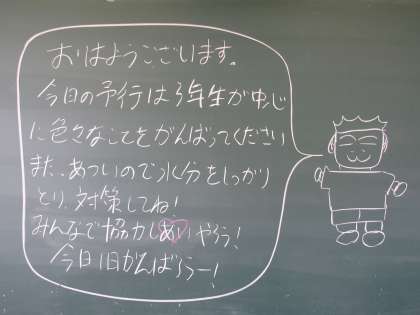 おはようございます。
今日の予行は3年生が中心
に色々なことをがんばってください
また、あついので水分をしっかり
とり、対策してね!
みんなで協力しあいやろう!
今日1日がんばろうー!